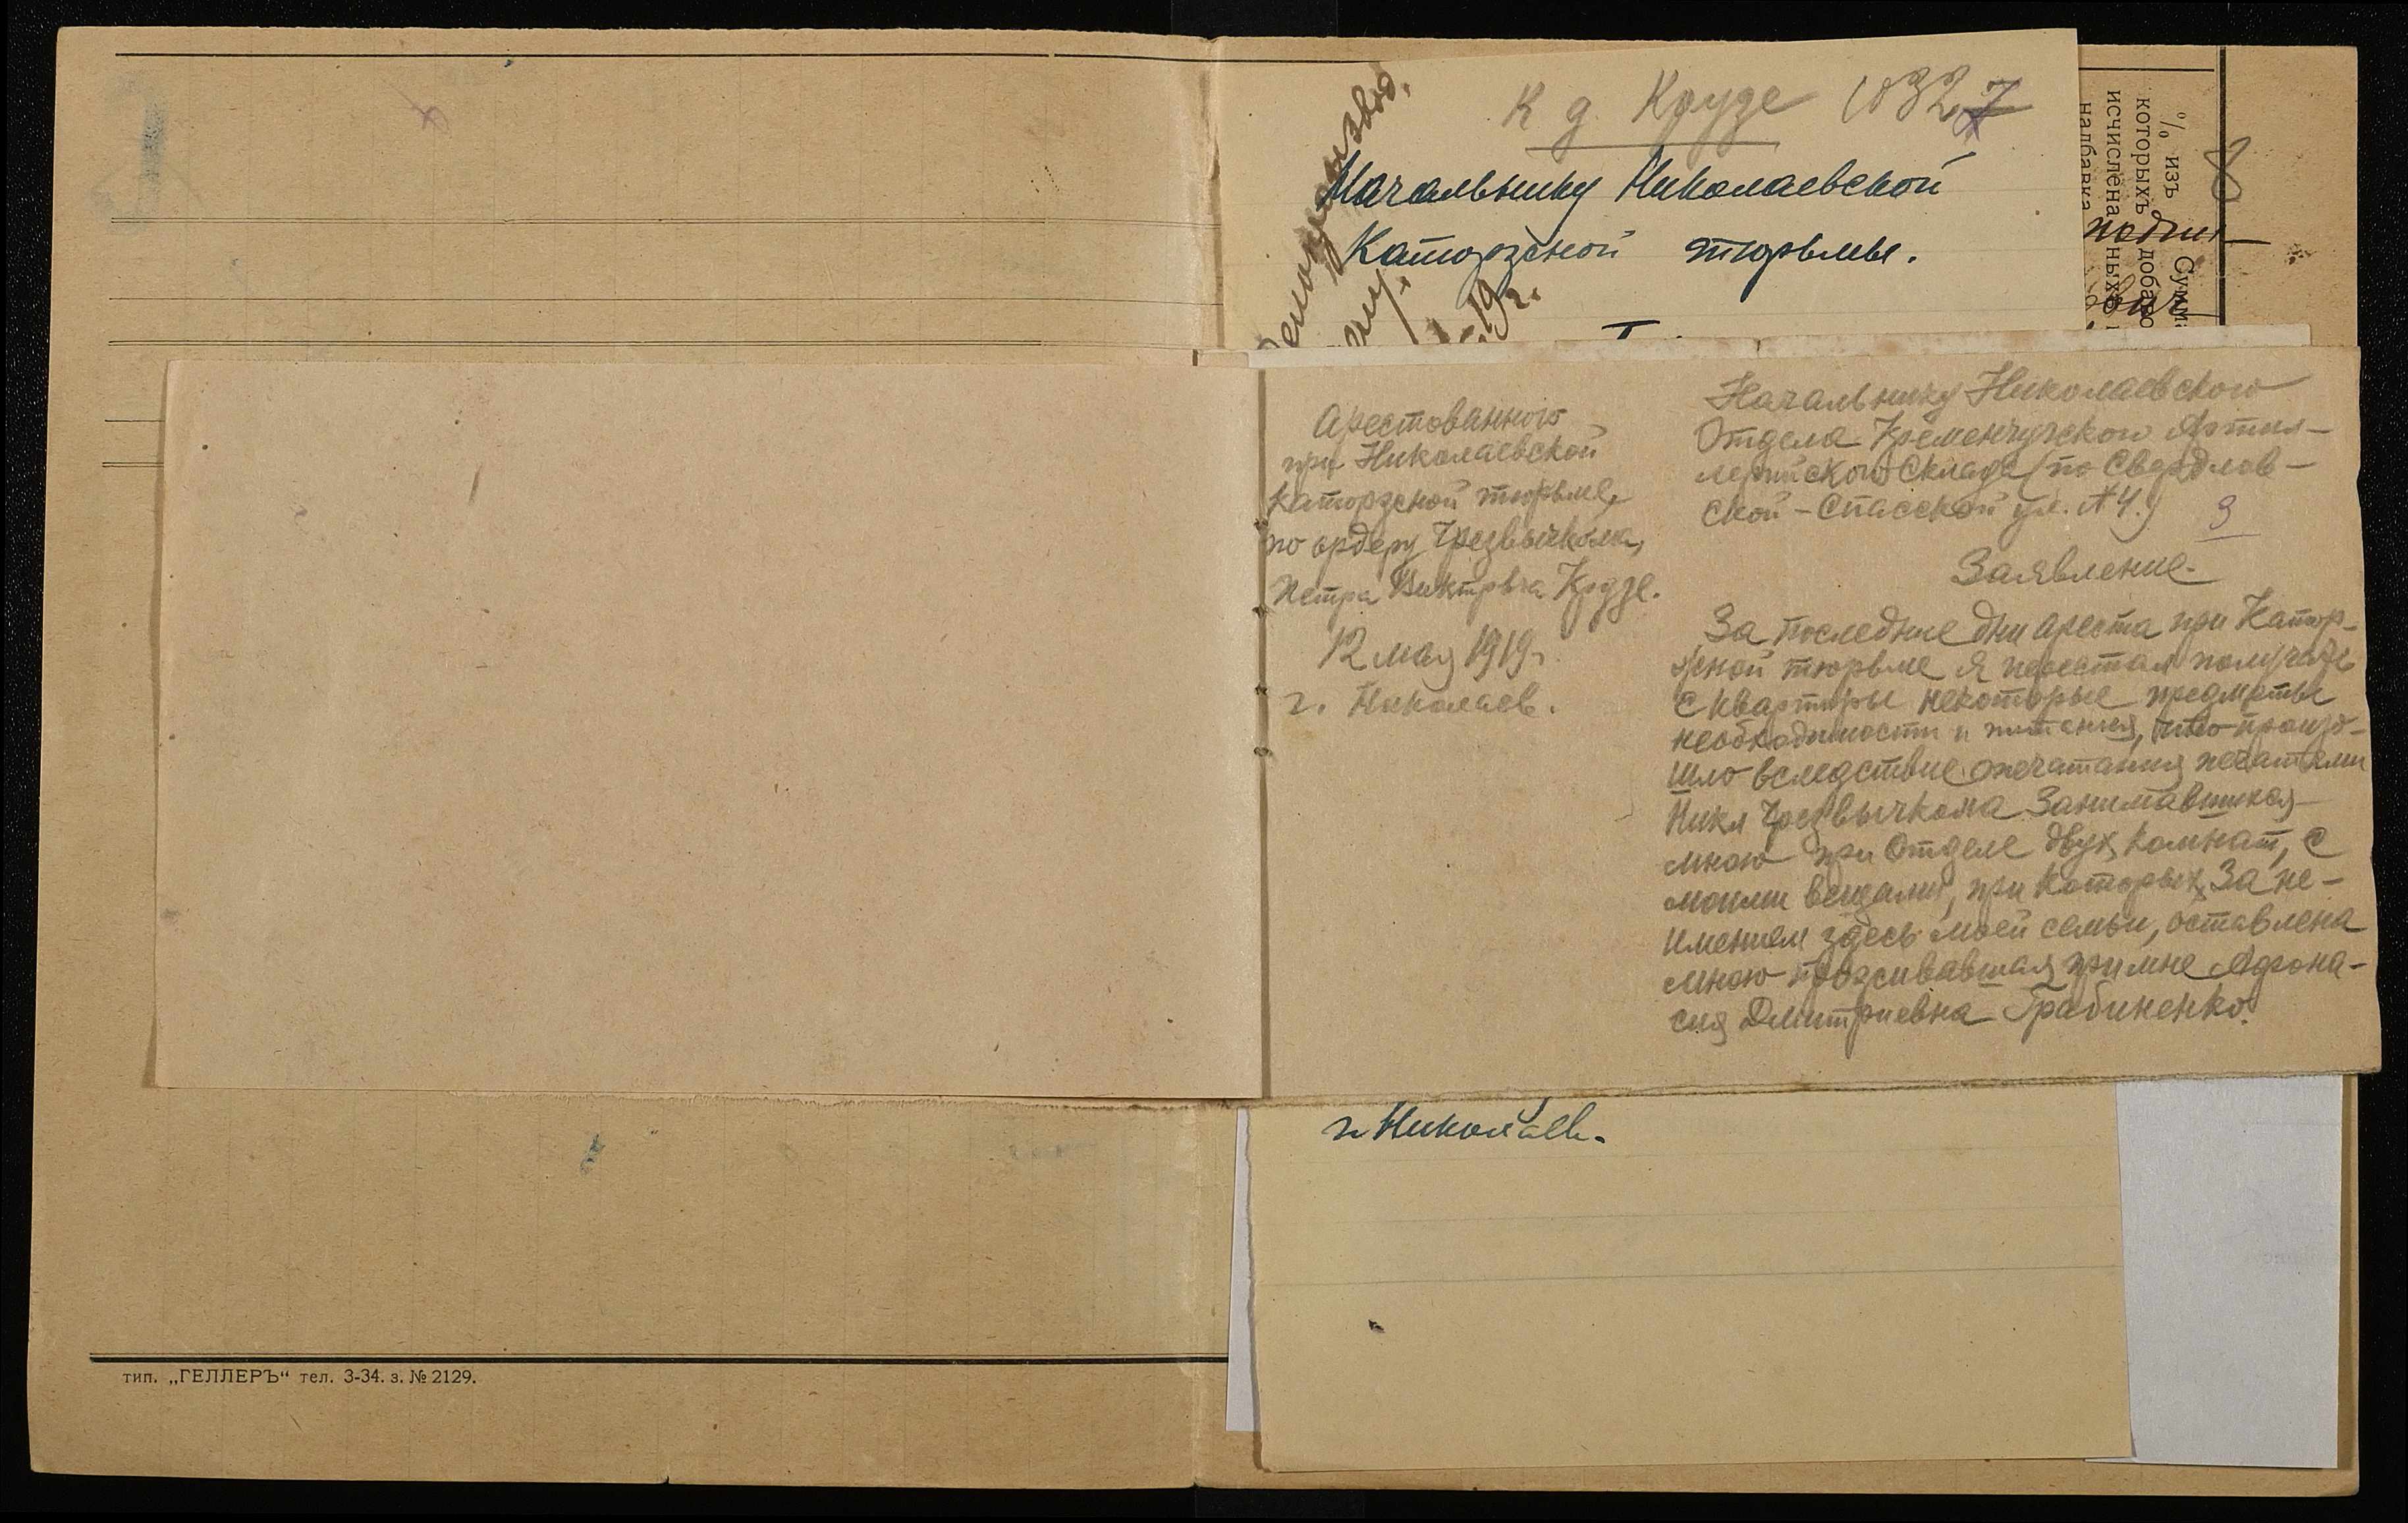 К д. Крузе 1032
Начальнику Николаевской
Каторжской тюрьмы.
19 г.
8
% изъ
которыхъ
исчислена
надбавка
Арестованного
при Николаевской
каторжской тюрьме,
по ордеру Чрезвычкома,
Петра Виктрвча Крузе.
12 мая 1919 г.
г. Николаев.
Начальнику Николаевского
Отдела Кременчугского Артил-
лерийского Склада (по Свердлов-
ской-Спасской ул. № 4.)
3
Заявление.
За последние дни ареста при Катор-
жной тюрьме я перестал получать
с квартиры некоторые предметы
необходимости и питания, что произо-
шло вследствие опечатания печатями
Никл Чрезвычкома занимавшихся
мною при Отделе двух комнат, с
моими вещами, при которых за не-
имением здесь моей семьи, оставлена
мною проживавшая при мне Афона-
сия Дмитриевна Грабиненко.
г. Николаев.
тип. „ГЕЛЛЕРЪ“ тел. 3-34. з. № 2129.